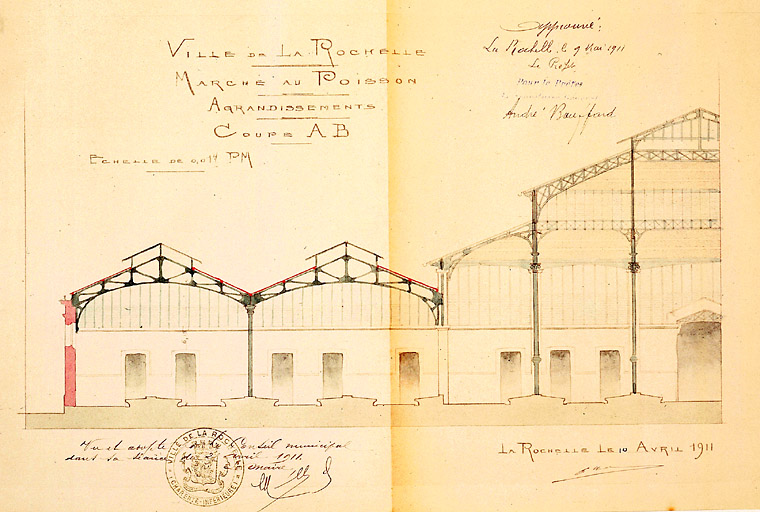 VILLE DE LA ROCHELLE
MARCHÉ AU POISSON
AGRANDISSEMENTS
COUPE AB
ECHELLE DE 0,01 PM
Approuvé:
La Rochelle, le 9 Mai 1911
Le Préfet
Pour le Préfet
André
Vu et adopté Conseil municipal
dans sa séance du avril 1911.
maire
VILLE DE LA ROCHELLE
CHARENTE-INFÉRIEURE
LA ROCHELLE LE 10 AVRIL 1911